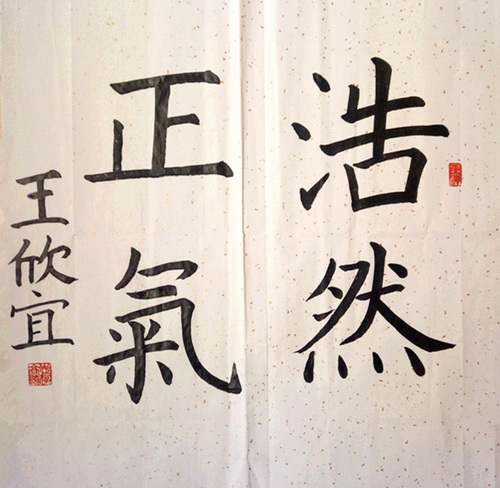 浩然
正氣
王欣宜